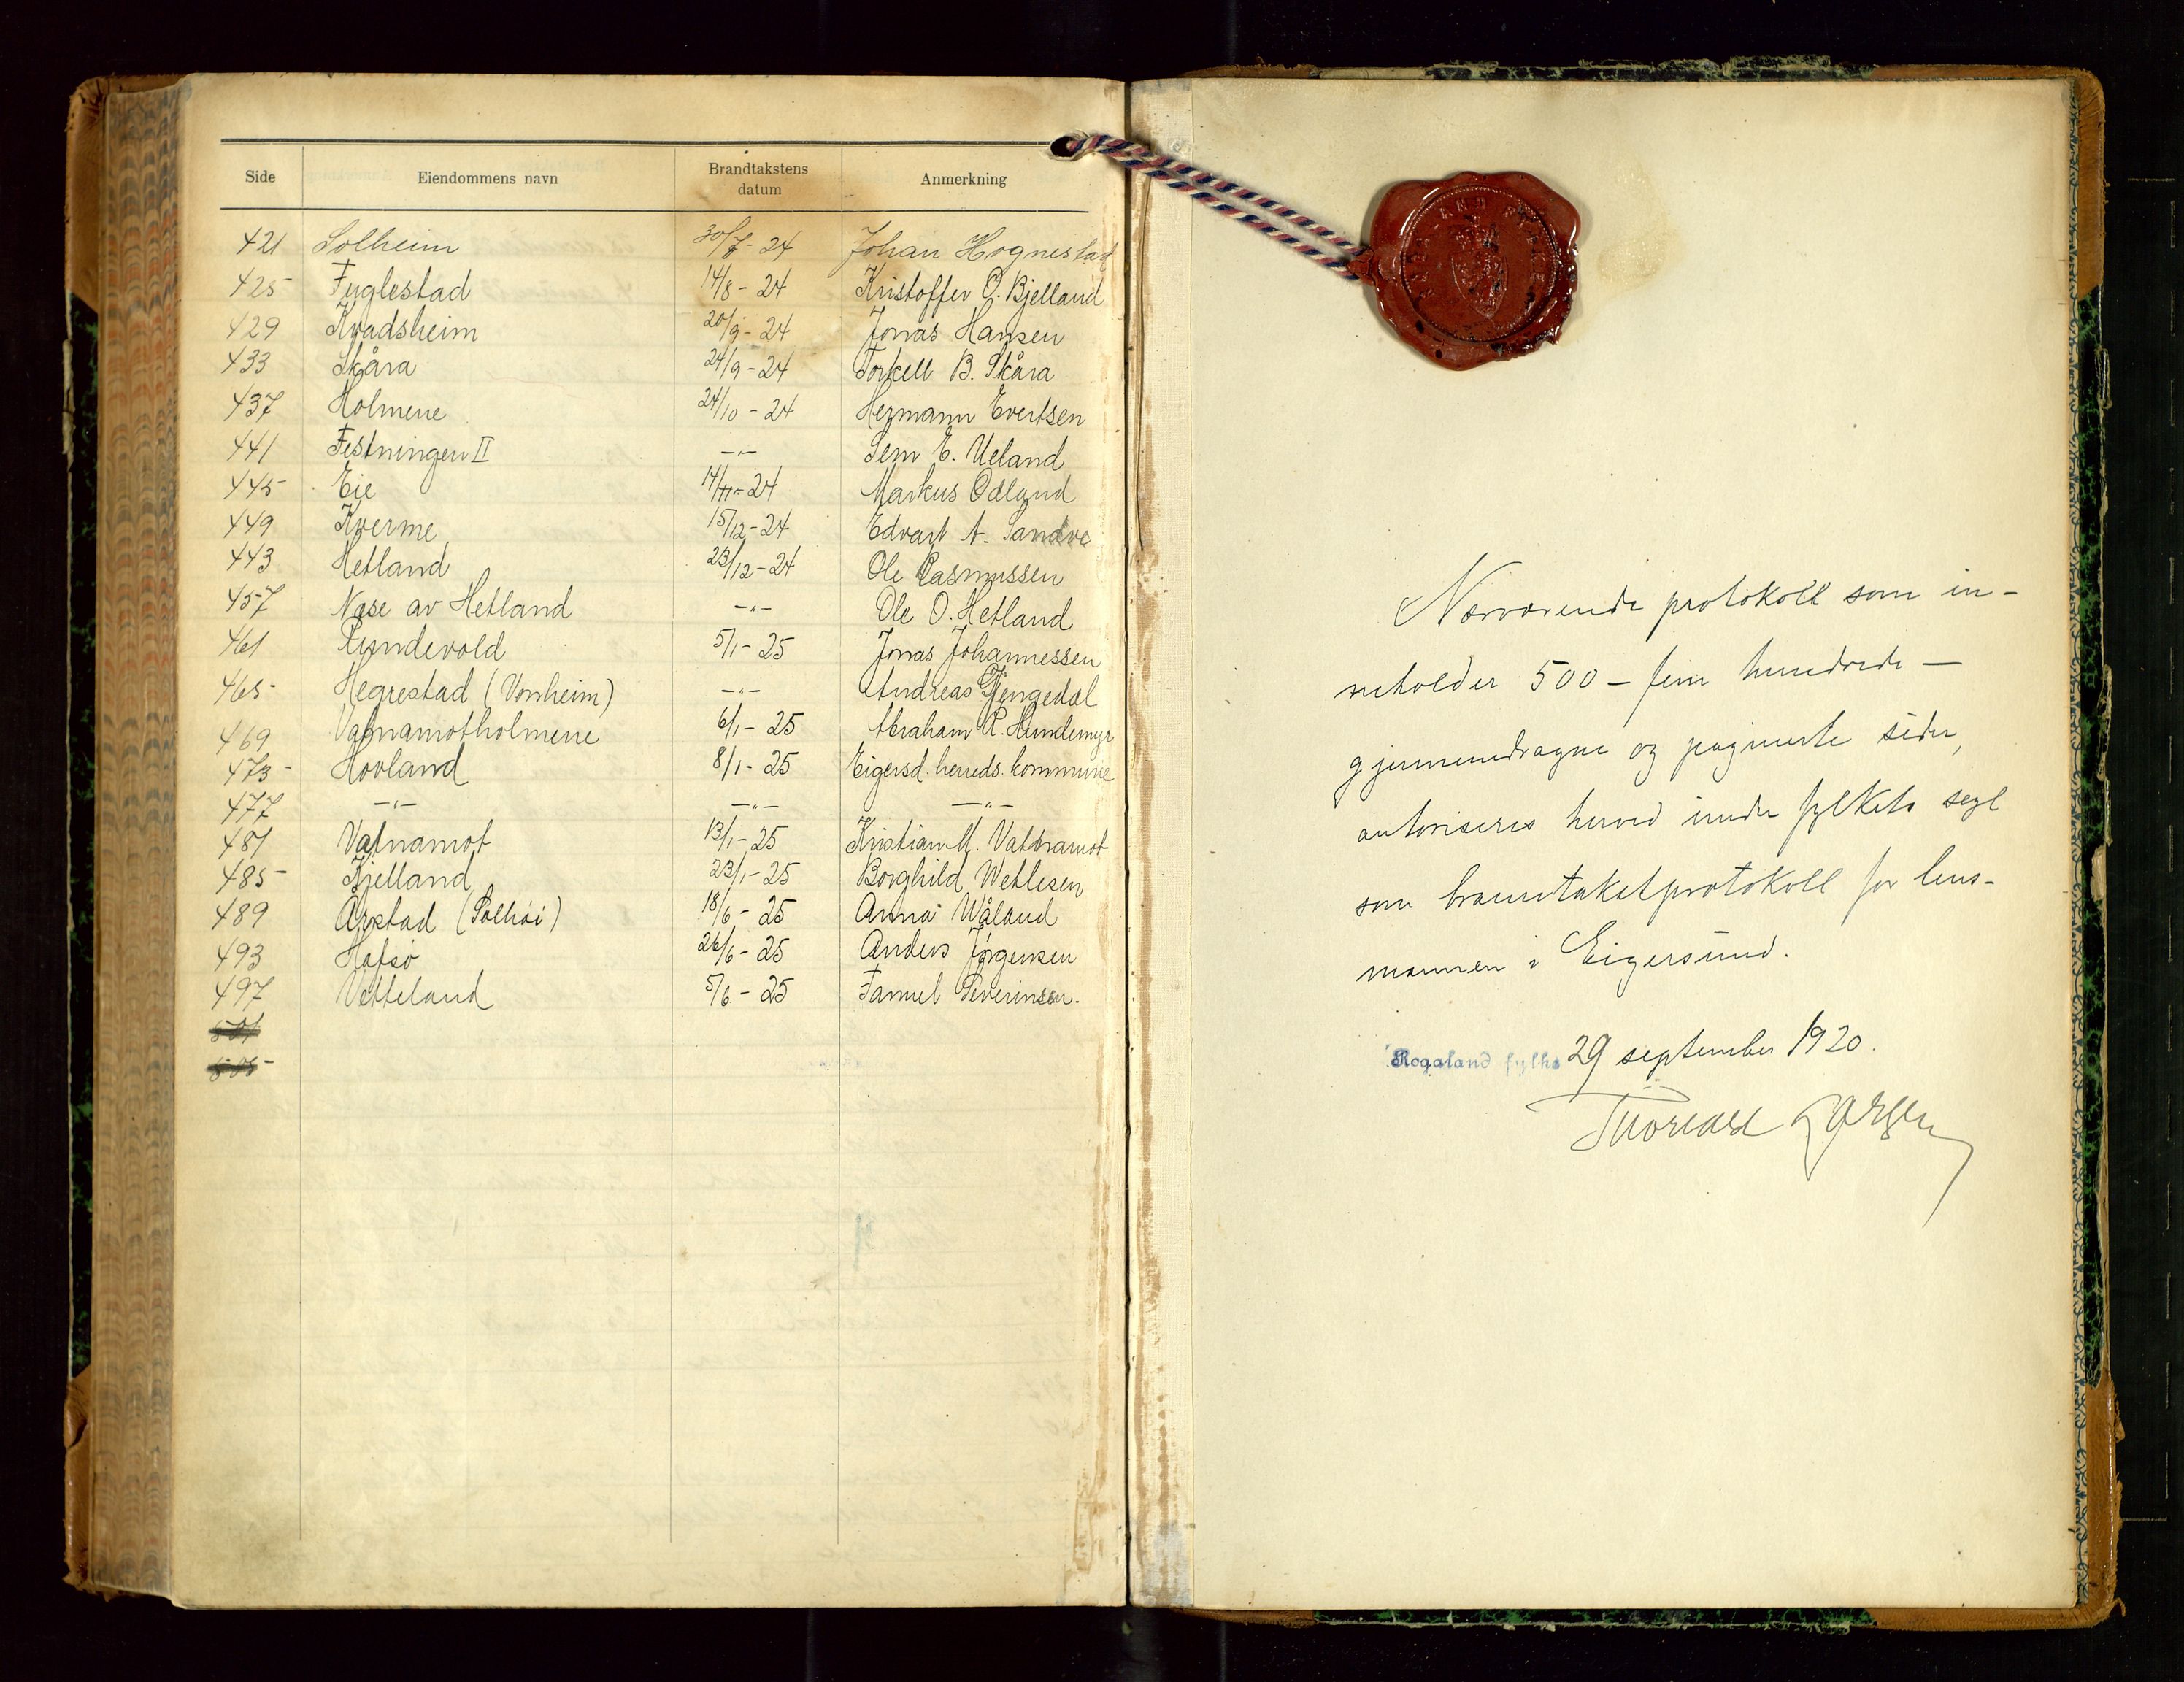 Side Eiendommens navn Brandtakstens datum Anmerkning
421 Solheim 30/7-24 Johan Hognestad
425 Fuglestad 14/8-24 Kristoffer O. Bjelland
429 Kvadsheim 20/9-24 Jonas Hansen
433 Skåra 24/9-24 Torkell B. Skåra
437 Holmene 24/10-24 Hermann Evertsen
441 Festningen II -"- Sem E. Ueland
445 Eie 14/11-24 Markus Odland
449 Kverme 15/12-24 Edvart A. Sandve
443 Hetland 23/12-24 Ole Rasmussen
457 Nese av Hetland -"- Ole O. Hetland
461 Rundevold 5/1-25 Jonas Johannessen
465 Hegrestad (Vonheim) -"- Andreas Gjengedal
469 Vatnamotholmene 6/1-25 Abraham R. Hundemyr
473 Hovland 8/1-25 Eigersd. herreds. kommune
477 -"- -"- -"-
481 Vatnamot 13/1-25 Kristian M. Vatnamot
485 Kjelland 23/1-25 Borghild Wetlesen
489 Årstad (Solhöi) 18/6-25 Anna Wåland
493 Hafsö 26/6-25 Anders Jörgensen
497 Vetteland 5/6-25 Samuel Severinsen.
501
505
Nærværende protokoll som in-
neholder 500 - fem hundrede -
gjennemdragne og paginerte sider,
autoriseres herved under fylkets segl
som branntakstprotokoll for lens-
mannen i Eigersund.
Rogaland fylke 29 september 1920.
Thorvald Larsen